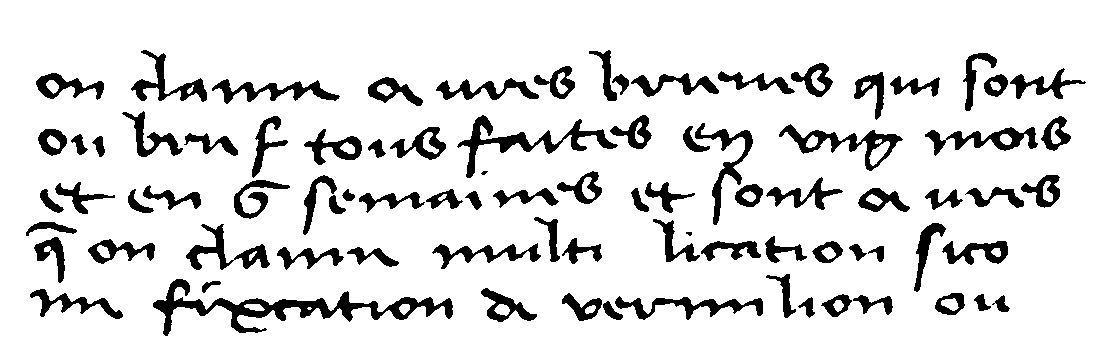 on clamm œuvres brieues qui sont
ou brief tous faites en vng mois
et en 6 semaines et sont œuvres
q̄ on clamm multi lication sico
mm fixcation de vermilion ou